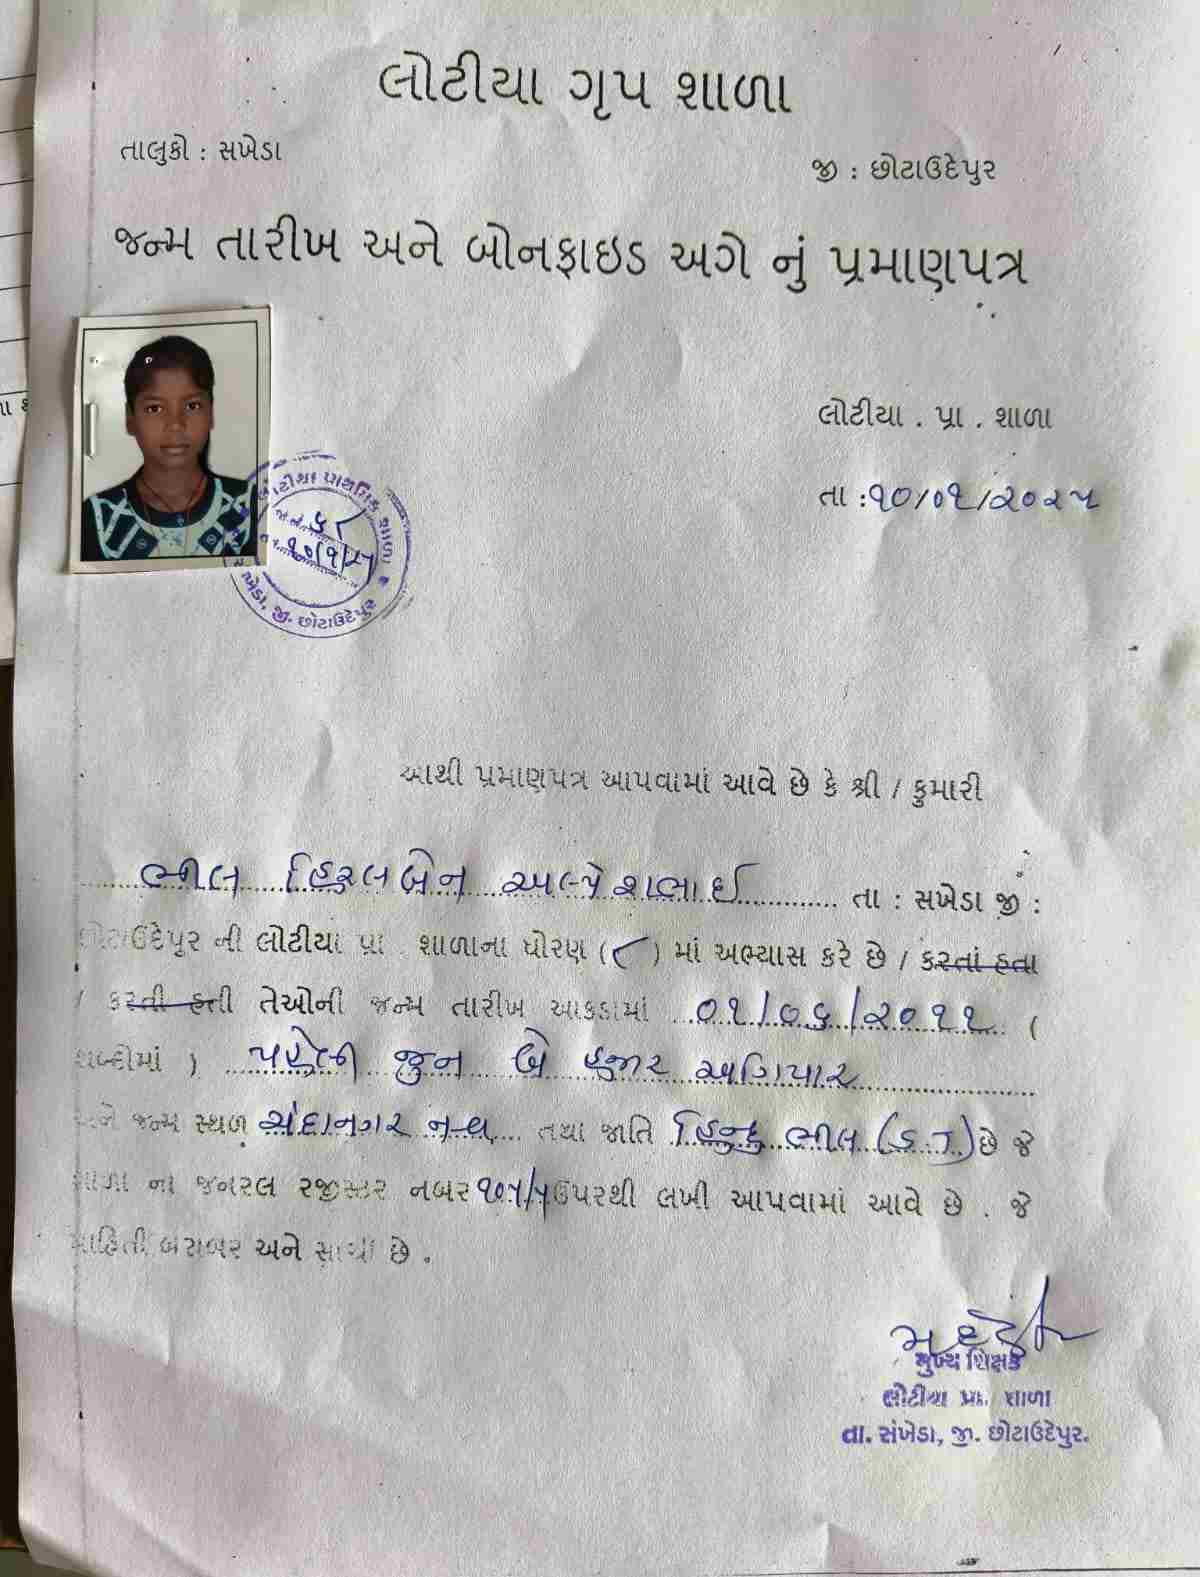 લોટીયા ગૃપ શાળા
તાલુકો : સખેડા
જી : છોટાઉદેપુર
જન્મ તારીખ અને બોનફાઇડ અગે નું પ્રમાણપત્ર
લોટીયા . પ્રા . શાળા
તા : ૧૦/૦૧/૨૦૨૫
લોટીયા પ્રાથમિક શાળા
જા.નં. ૫૮
તા. ૧૦/૧/૨૫
સંખેડા, જી. છોટાઉદેપુર
આથી પ્રમાણપત્ર આપવામાં આવે છે કે શ્રી / કુમારી
ભીલ હિરલબેન અલ્પેશભાઈ તા : સખેડા જી :
છોટાઉદેપુર ની લોટીયા પ્રા . શાળાના ધોરણ (૮) માં અભ્યાસ કરે છે / કરતાં હતા
/ કરતી હતી તેઓની જન્મ તારીખ આકડામાં ૦૧/૦૬/૨૦૧૧ (
શબ્દોમાં ) પહેલી જુન બે હજાર અગિયાર
અને જન્મ સ્થળ ચંદાનગર તથા જાતિ હિન્દુ ભીલ છે જે
શાળા ના જનરલ રજીસ્ટર નબર ૧૦૫/૫ ઉપરથી લખી આપવામાં આવે છે . જે
માહિતી બરાબર અને સાચી છે .
મુખ્ય શિક્ષક
લોટીયા પ્રા. શાળા
તા. સંખેડા, જી. છોટાઉદેપુર.